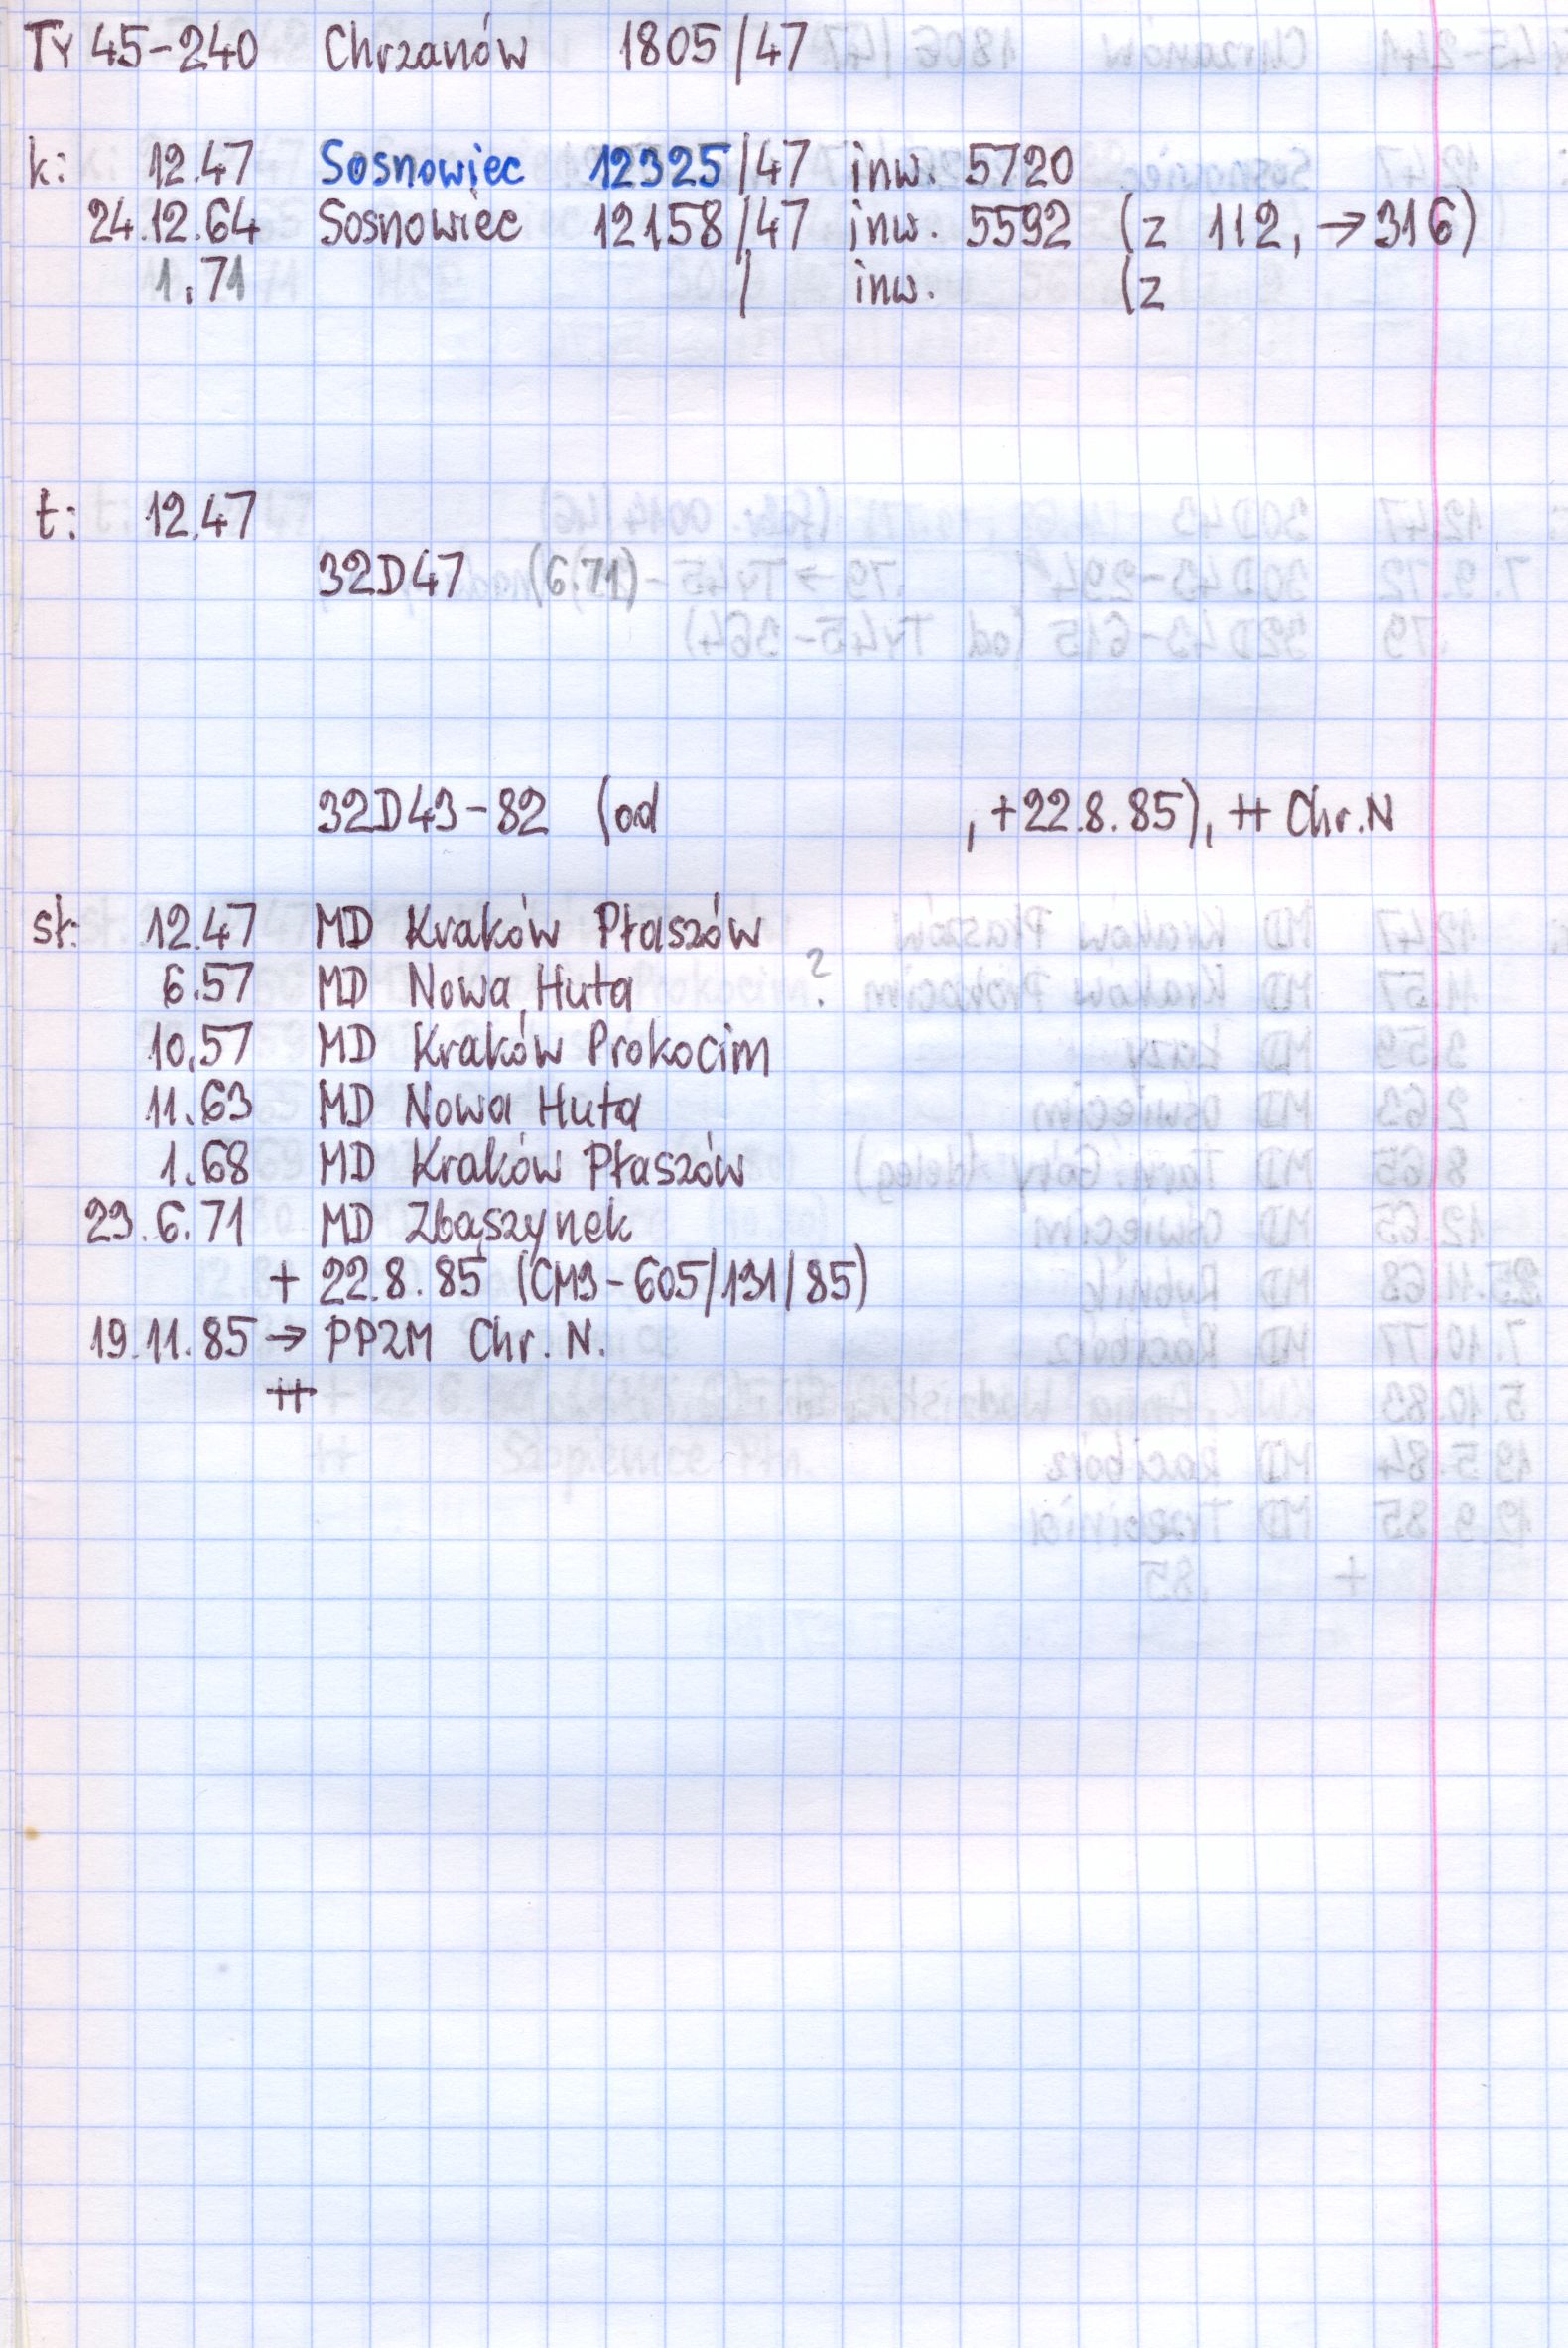 Ty 45-240 Chrzanów 1805/47
k: 12.47 Sosnowiec 12325/47 inw. 5720
24.12.64 Sosnowiec 12158/47 inw. 5592 (z 112, → 316)
1.71 / inw. (z
t: 12.47
32D47 (6.71)
32D43-82 (od , +22.8.85), ++ Chr.N
sł: 12.47 MD Kraków Płaszów
6.57 MD Nowa Huta ?
10.57 MD Kraków Prokocim
11.63 MD Nowa Huta
1.68 MD Kraków Płaszów
29.6.71 MD Zbąszynek
+ 22.8.85 (CM3-605/131/85)
19.11.85 → PPZM Chr. N.
++